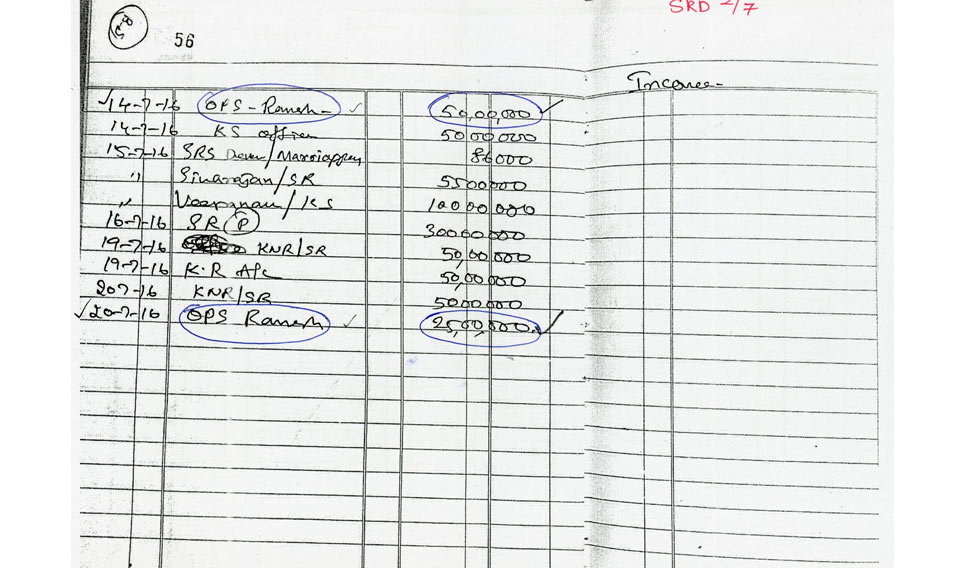 SRD 2/7
56
Income
14-7-16 OPS - Ramesh - 50,00,000
14-7-16 KS office 5000000
15-7-16 SRS 86000
" /SR 5500000
" /KS 10000000
16-7-16 SR (P) 30000000
19-7-16 KNR/SR 50,00,000
19-7-16 K.R A/c 50,00,000
207-16 KNR/SR 5000000
20-7-16 OPS Ramesh 25,00,000